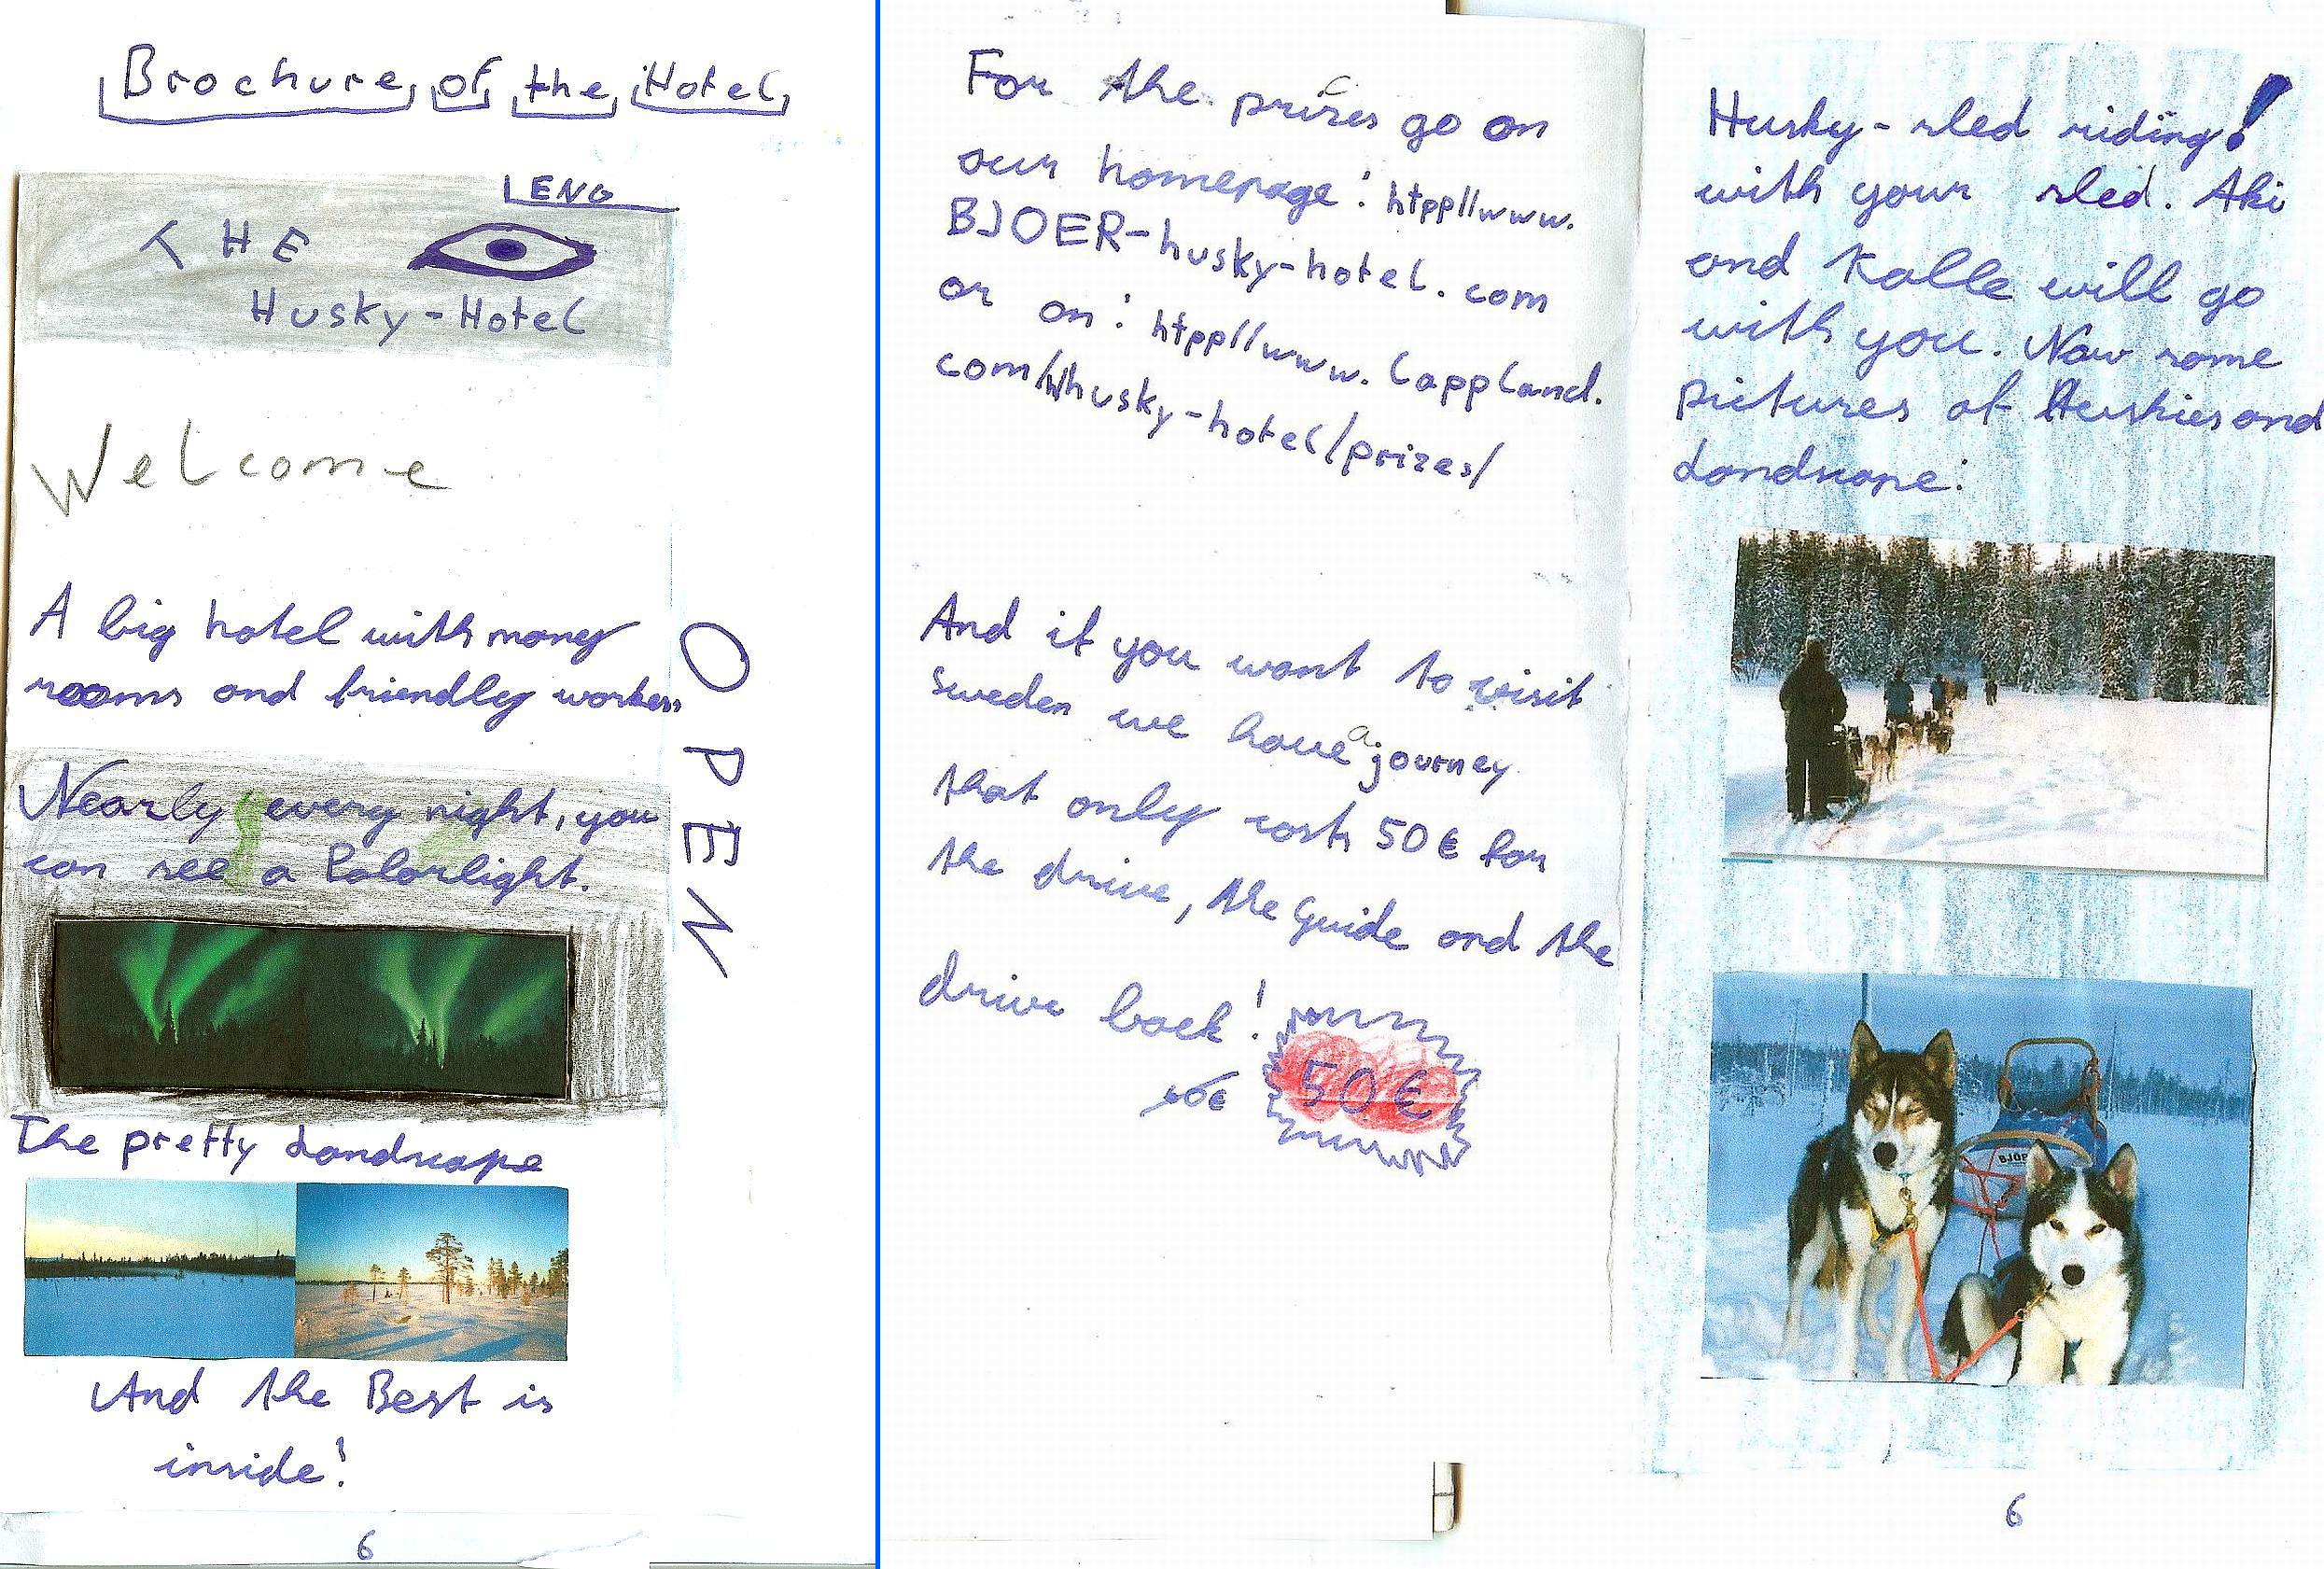 Brochure of the Hotel
ENG
THE
Husky-Hotel
Welcome
A big hotel with many
rooms and friendly workers
Nearly every night, you
can see a Polarlight.
The pretty Landscape
And the Best is
inside!
6
OPEN
For the prizes go on
c
our homepage: htpp//www.
BJOER-husky-hotel.com
or on: htpp//www.lappland.
com/husky-hotel/prizes/
And if you want to visit
Sweden we have a journey
that only costs 50€ for
the drive, the Guide and the
drive back!
50€
Husky-sled riding!
with your sled. Aki
and Kalle will go
with you. Now some
pictures of Huskies and
Landscape:
BJÖR
6